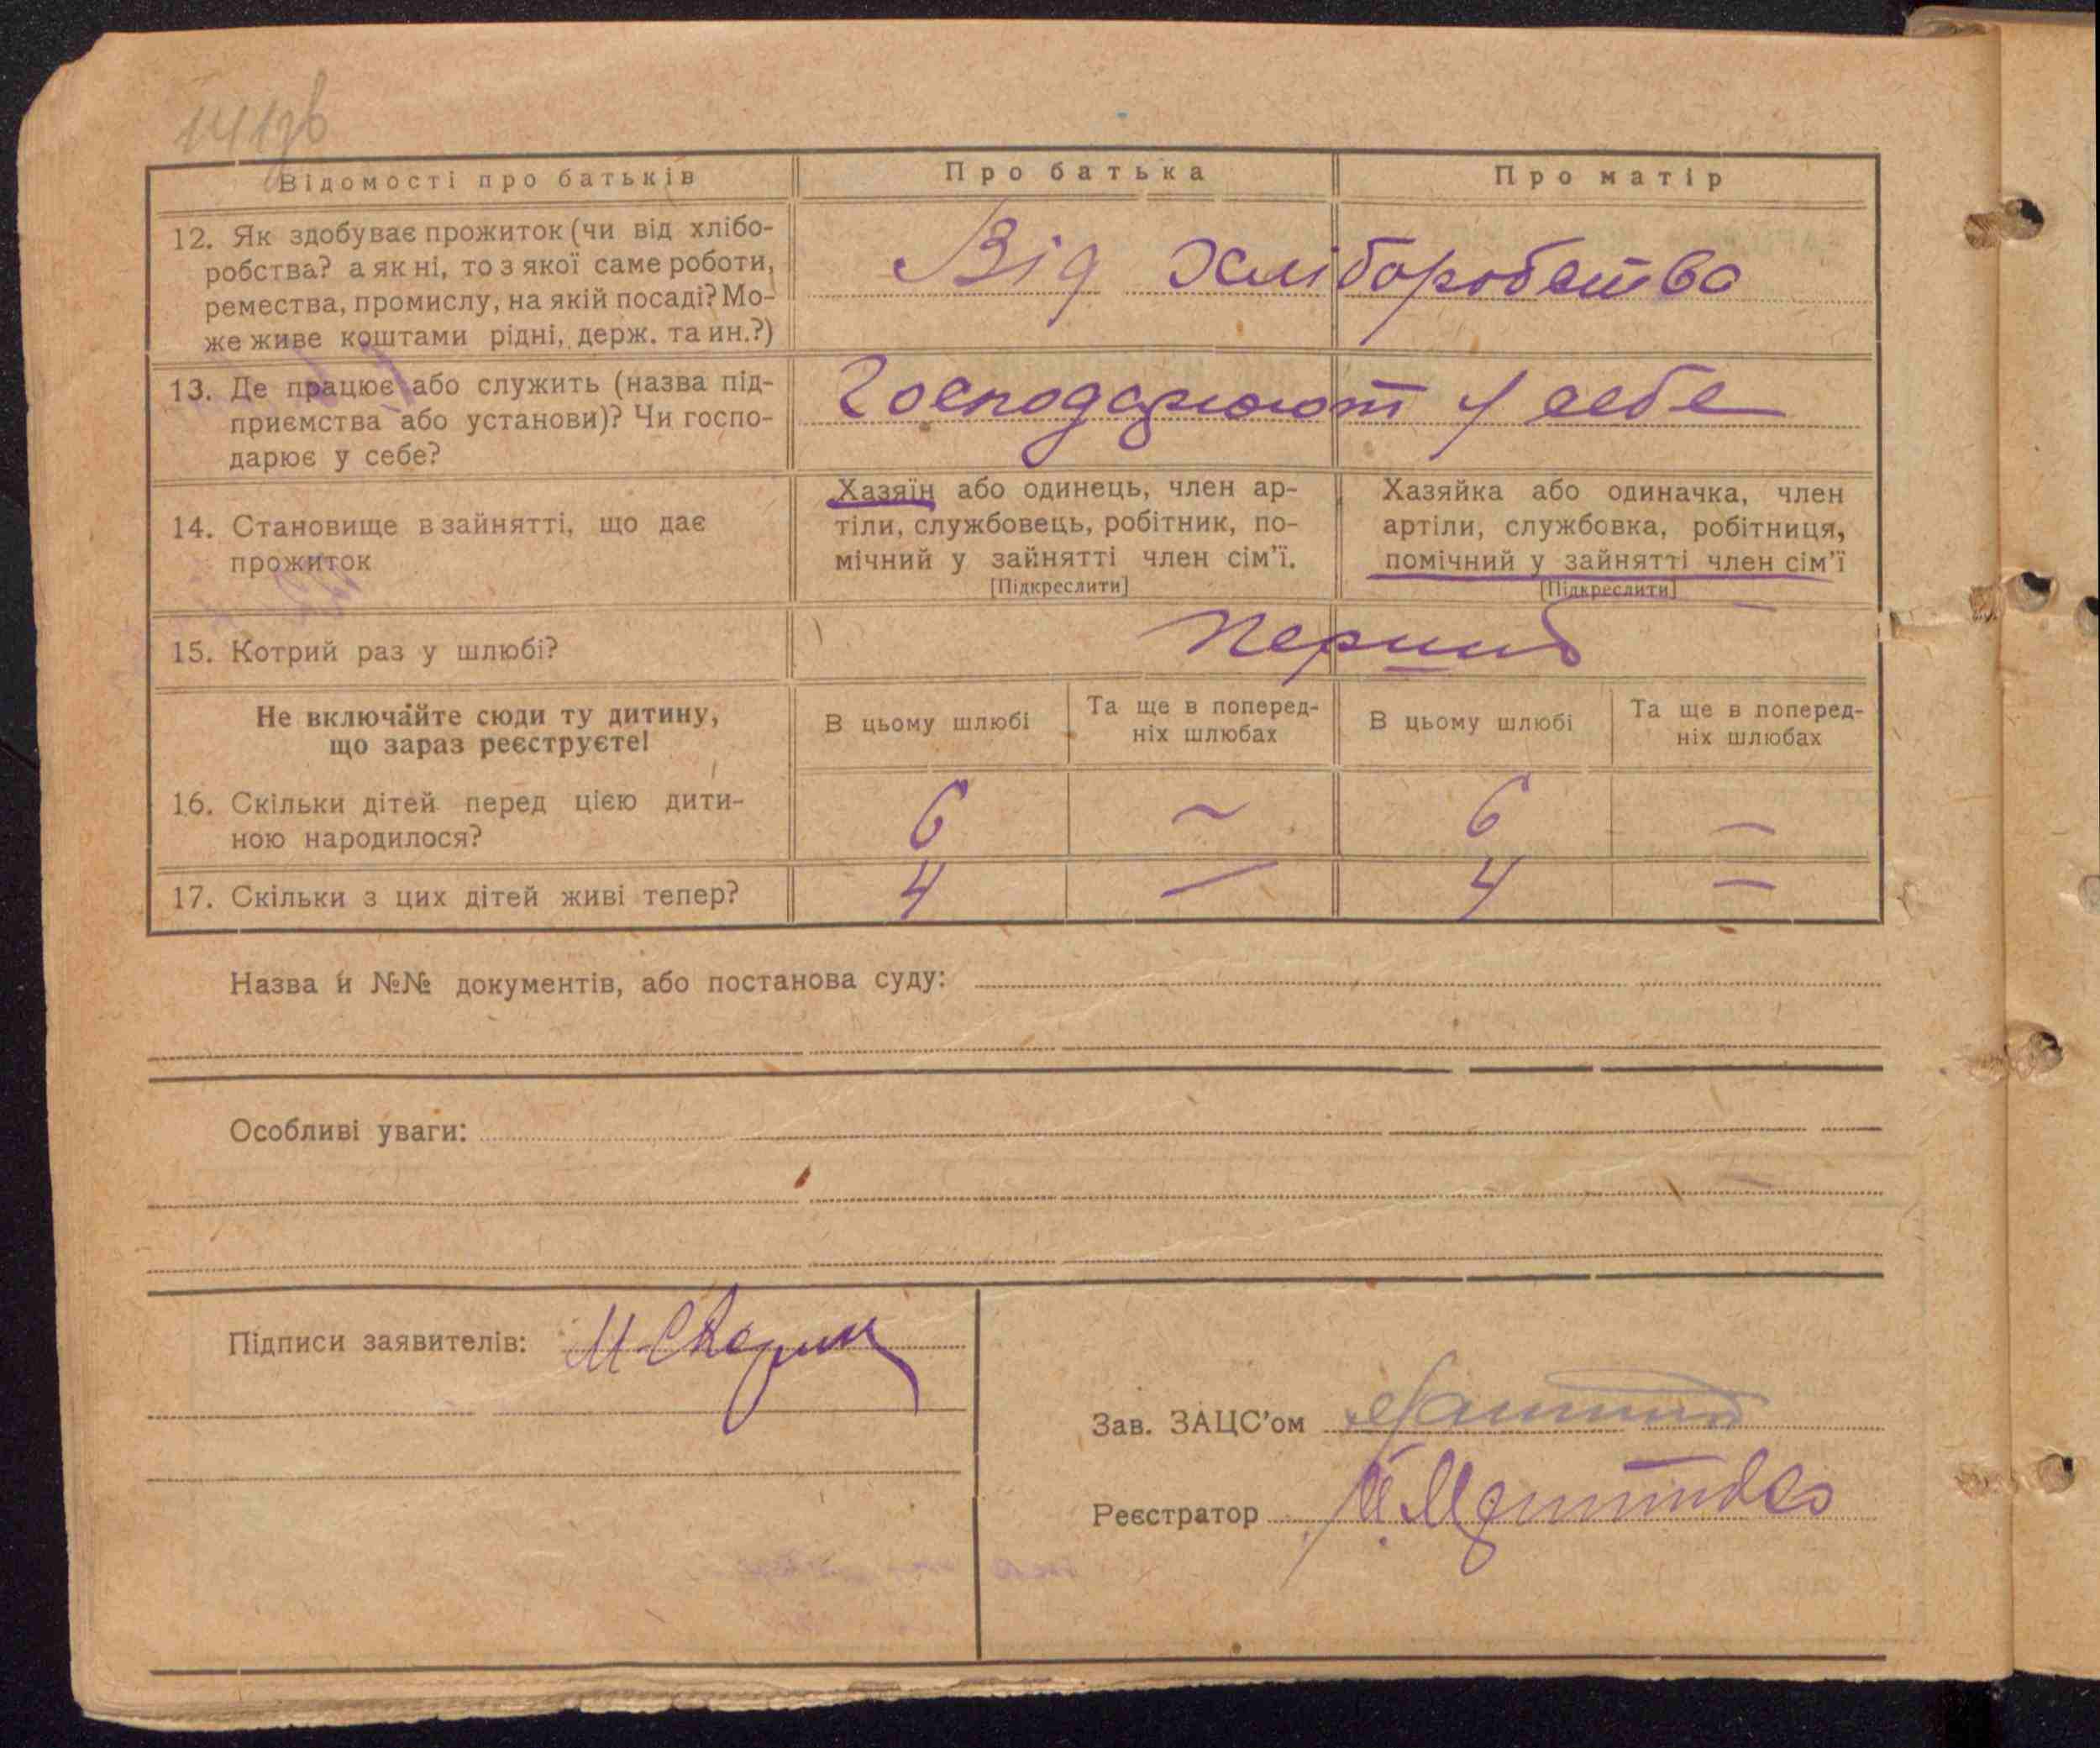 Відомості про батьків
Про батька
Про матір
12. Як здобуває прожиток (чи від хлібо-
робства? а як ні, то з якої саме роботи,
ремества, промислу, на якій посаді? Мо-
же живе коштами рідні, держ. та ин.?)
Від хліборобства
13. Де працює або служить (назва під-
приємства або установи)? Чи госпо-
дарює у себе?
Господарюют у себе
14. Становище в зайнятті, що дає
прожиток
Хазяїн або одинець, член ар-
тіли, службовець, робітник, по-
мічний у зайнятті член сім'ї.
[Підкреслити]
Хазяйка або одиначка, член
артіли, службовка, робітниця,
помічний у зайнятті член сім'ї
[Підкреслити]
15. Котрий раз у шлюбі?
Перший
Не включайте сюди ту дитину,
що зараз реєструєте!
В цьому шлюбі
Та ще в поперед-
ніх шлюбах
В цьому шлюбі
Та ще в поперед-
ніх шлюбах
16. Скільки дітей перед цією дити-
ною народилося?
6 — 6 —
17. Скільки з цих дітей живі тепер?
4 — 4 —
Назва й №№ документів, або постанова суду:
Особливі уваги:
Підписи заявителів:
Зав. ЗАЦС'ом
Реєстратор